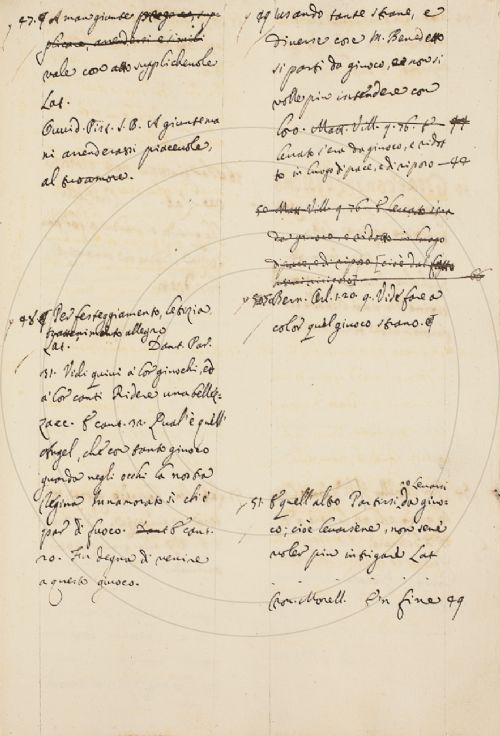 47. ¶ A man giunte pregare, sup-
plicare, arrendersi e simili
vale con atto supplichevole
Lat.
Ouvid. Pist. S. B. A giunte ma
ni arrenderassi piacevole,
al suo amore.
48 ¶ Per festeggiamento, letizia
trattenimento allegro
Lat. Dant. Par.
31. Vidi quivi a' lor giuochi, ed
a' lor canti Ridere una bellez-
zaec. E cant. 32. Qual'è quell'
Angel, che con tanto giuoco
guarda negli occhi la nostra
Regina Innamorato sì che
par di fuoco. Dant E cant.
20. Fin degna di venire
a questo giuoco.
49 usando tante strane, e
diverse cose M. Benedetto
si partì da giuoco, e non si
volle più intendere con
loro. Matt. Vill. 9. 76. E
levato s'era da giuoco, e ridot
to in luogo di pace, e di riposo
50 Matt Vill 9 76 E levato s'era
da giuoco, e ridotto in luogo
di pace, e di riposo [cioè dal
Bern. Orl. 1. 20. 9. Vide fare a
color quel giuoco strano. ¶
51. E quell'altro Partirsi, o Levarsi da giuo-
co; cioè levarsene, non sene
voler più intrigare Lat
Cron. Morell. In fine 49